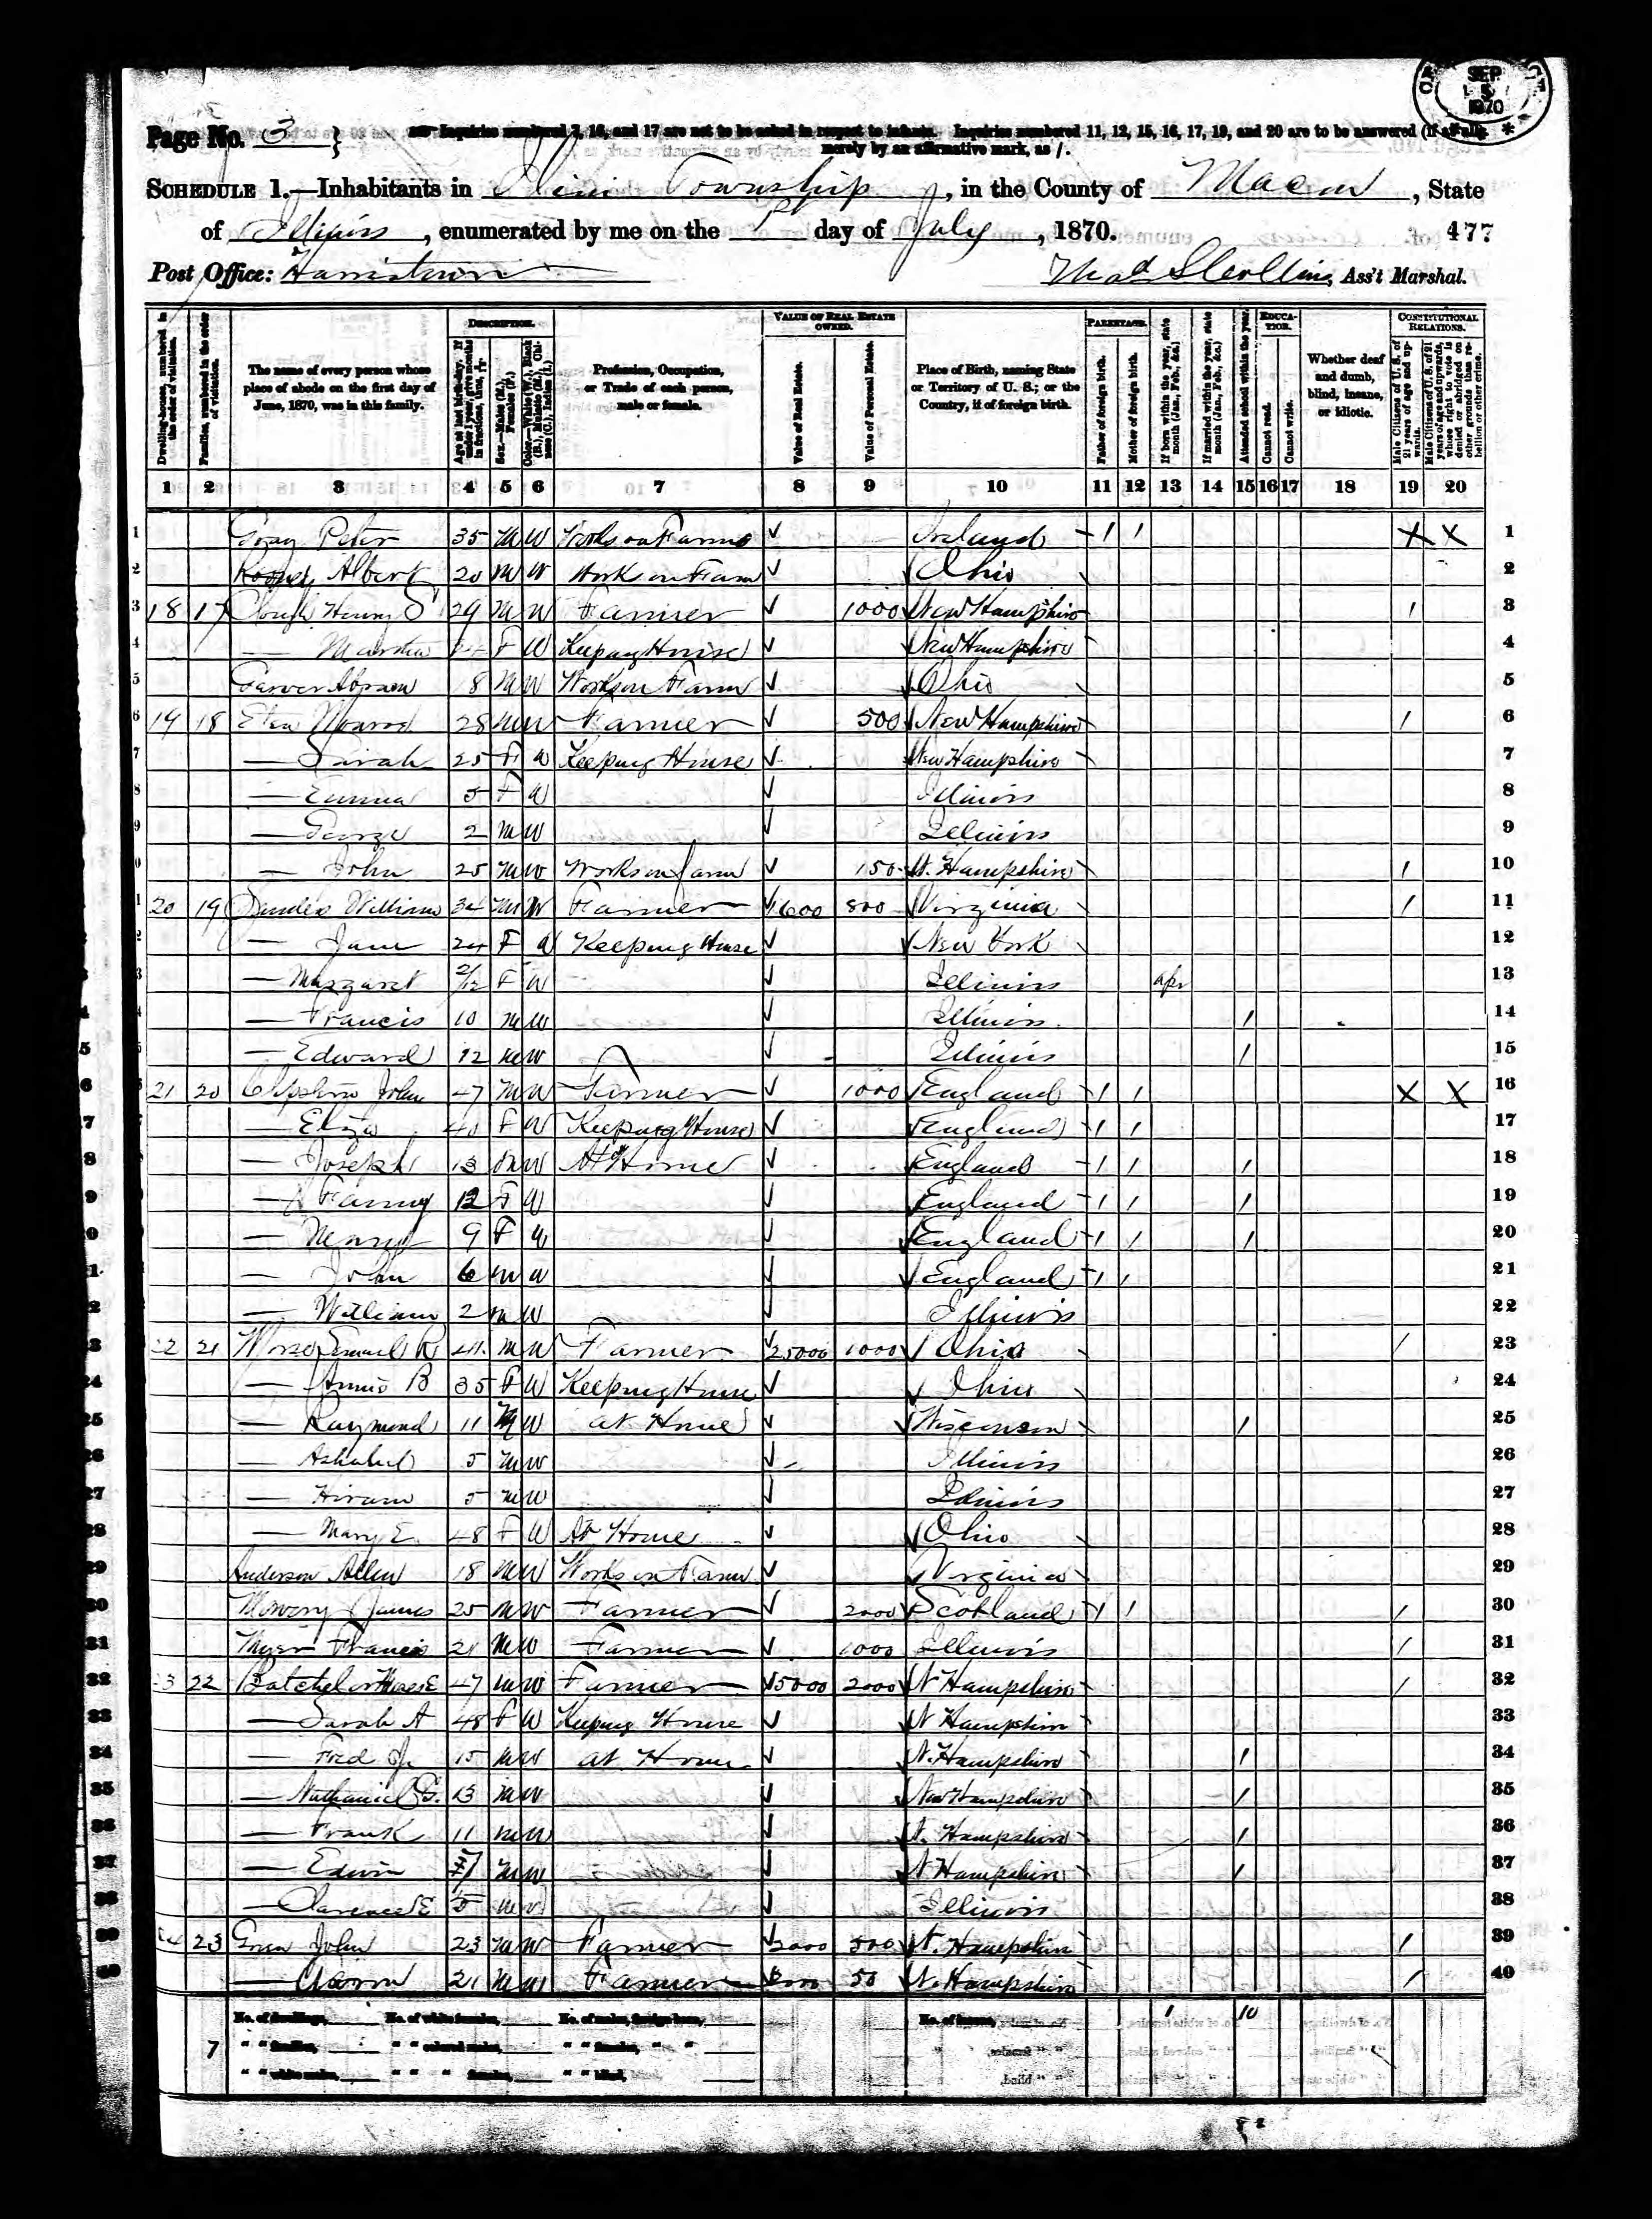 SEP 5 1870
Page No. 3 } Inquiries numbered 7, 16, and 17 are not to be asked in respect to infants. Inquiries numbered 11, 12, 15, 16, 17, 19, and 20 are to be answered (if at all)
merely by an affirmative mark, as /.
SCHEDULE 1.—Inhabitants in Township, in the County of Macon, State
of Illinois, enumerated by me on the day of July, 1870. 477
Post Office: Harristown Ass't Marshal.
Dwelling-houses, numbered in the order of visitation.
Families, numbered in the order of visitation.
The name of every person whose place of abode on the first day of June, 1870, was in this family.
DESCRIPTION.
Age at last birth-day. If under 1 year, give months in fractions, thus,
Sex.—Males (M.), Females (F.)
Color.—White (W.), Black (B.), Mulatto (M.), Chinese (C.), Indian (I.)
Profession, Occupation, or Trade of each person, male or female.
VALUE OF REAL ESTATE OWNED.
Value of Real Estate.
Value of Personal Estate.
Place of Birth, naming State or Territory of U. S.; or the Country, if of foreign birth.
PARENTAGE.
Father of foreign birth.
Mother of foreign birth.
If born within the year, state month (Jan., Feb., &c.)
If married within the year, state month (Jan., Feb., &c.)
Attended school within the year.
EDUCATION.
Cannot read.
Cannot write.
Whether deaf and dumb, blind, insane, or idiotic.
CONSTITUTIONAL RELATIONS.
Male Citizens of U. S. of 21 years of age and upwards.
Male Citizens of U. S. of 21 years of age and upwards, whose right to vote is denied or abridged on other grounds than rebellion or other crime.
1 2 3 4 5 6 7 8 9 10 11 12 13 14 15 16 17 18 19 20
1 Peter 35 M W Works on Farm Ireland / / X X 1
2 Albert 20 M W Works on Farm Ohio 2
3 18 17 Clough Henry S 29 M W Farmer 1000 New Hampshire / 3
4 — Martha F W Keeping House New Hampshire 4
5 Garver Abram 18 M W Works on Farm Ohio 5
6 19 18 28 M W Farmer 500 New Hampshire / 6
7 — Sarah 25 F W Keeping House New Hampshire 7
8 — Emma 5 F W Illinois 8
9 — George 2 M W Illinois 9
10 — John 25 M W Works on farm 150 N. Hampshire / 10
11 20 19 William M W Farmer 1600 800 Virginia / 11
12 — Jane 24 F W Keeping House New York 12
13 — Margaret 2/12 F W Illinois Apr 13
14 — Francis 10 M W Illinois / 14
15 — Edward 12 M W Illinois / 15
16 21 20 John 47 M W Farmer 1000 England / / X X 16
17 — Eliza 40 F W Keeping House England / / 17
18 — Joseph 13 M W At Home England / / / 18
19 — Fanny 12 F W England / / / 19
20 — 9 F W England / / / 20
21 — John 6 M W England / / 21
22 — William 2 M W Illinois 22
23 22 21 R 41 M W Farmer 25000 1000 Ohio / 23
24 — Annis B 35 F W Keeping House Ohio 24
25 — Raymond 11 M W at Home Wisconsin / 25
26 — Ashahel 5 M W Illinois 26
27 — Hiram 5 M W Illinois 27
28 — Mary E. 48 F W At Home Ohio 28
29 Anderson Allen 18 M W Works on Farm Virginia 29
30 Mowery James 25 M W Farmer 2000 Scotland / / / 30
31 Myer Francis 21 M W Farmer 1000 Illinois / 31
32 23 22 Batchelor 47 M W Farmer 15000 2000 N Hampshire / 32
33 — Sarah A 48 F W Keeping House N Hampshire 33
34 — Fred J. 15 M W at Home N. Hampshire / 34
35 — Nathaniel G. 13 M W New Hampshire / 35
36 — Frank 11 M W N. Hampshire / 36
37 — Edwin 7 M W N Hampshire / 37
38 — Clarence E M W Illinois 38
39 24 23 John 23 M W Farmer 2000 500 N. Hampshire / 39
40 — Aaron 21 M W Farmer 50 N. Hampshire / 40
No. of dwellings, No. of white females, No. of males, foreign born, No. of insane, 1 10
7 " " families, " " colored males, " " females, " "
" " white males, " " " females, " " blind,